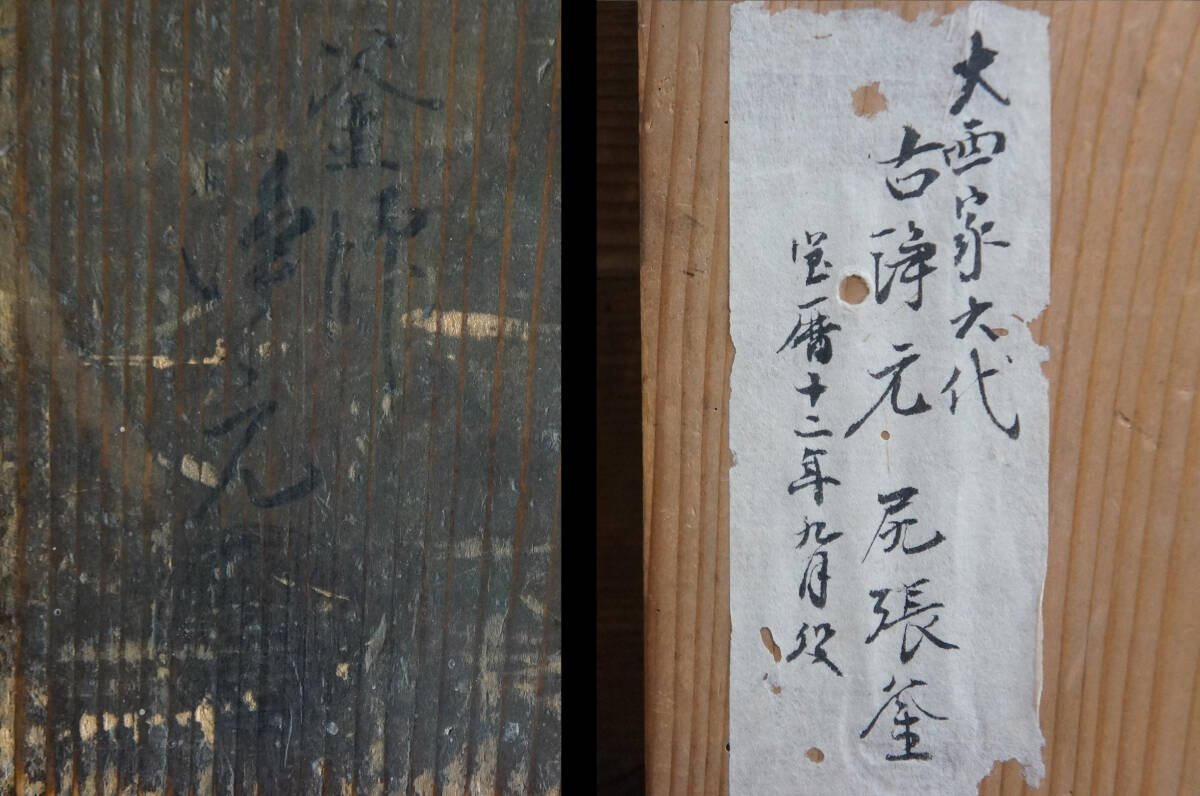 釜師
淨元
大西家六代
古淨元 尻張釜
宝暦十二年九月没